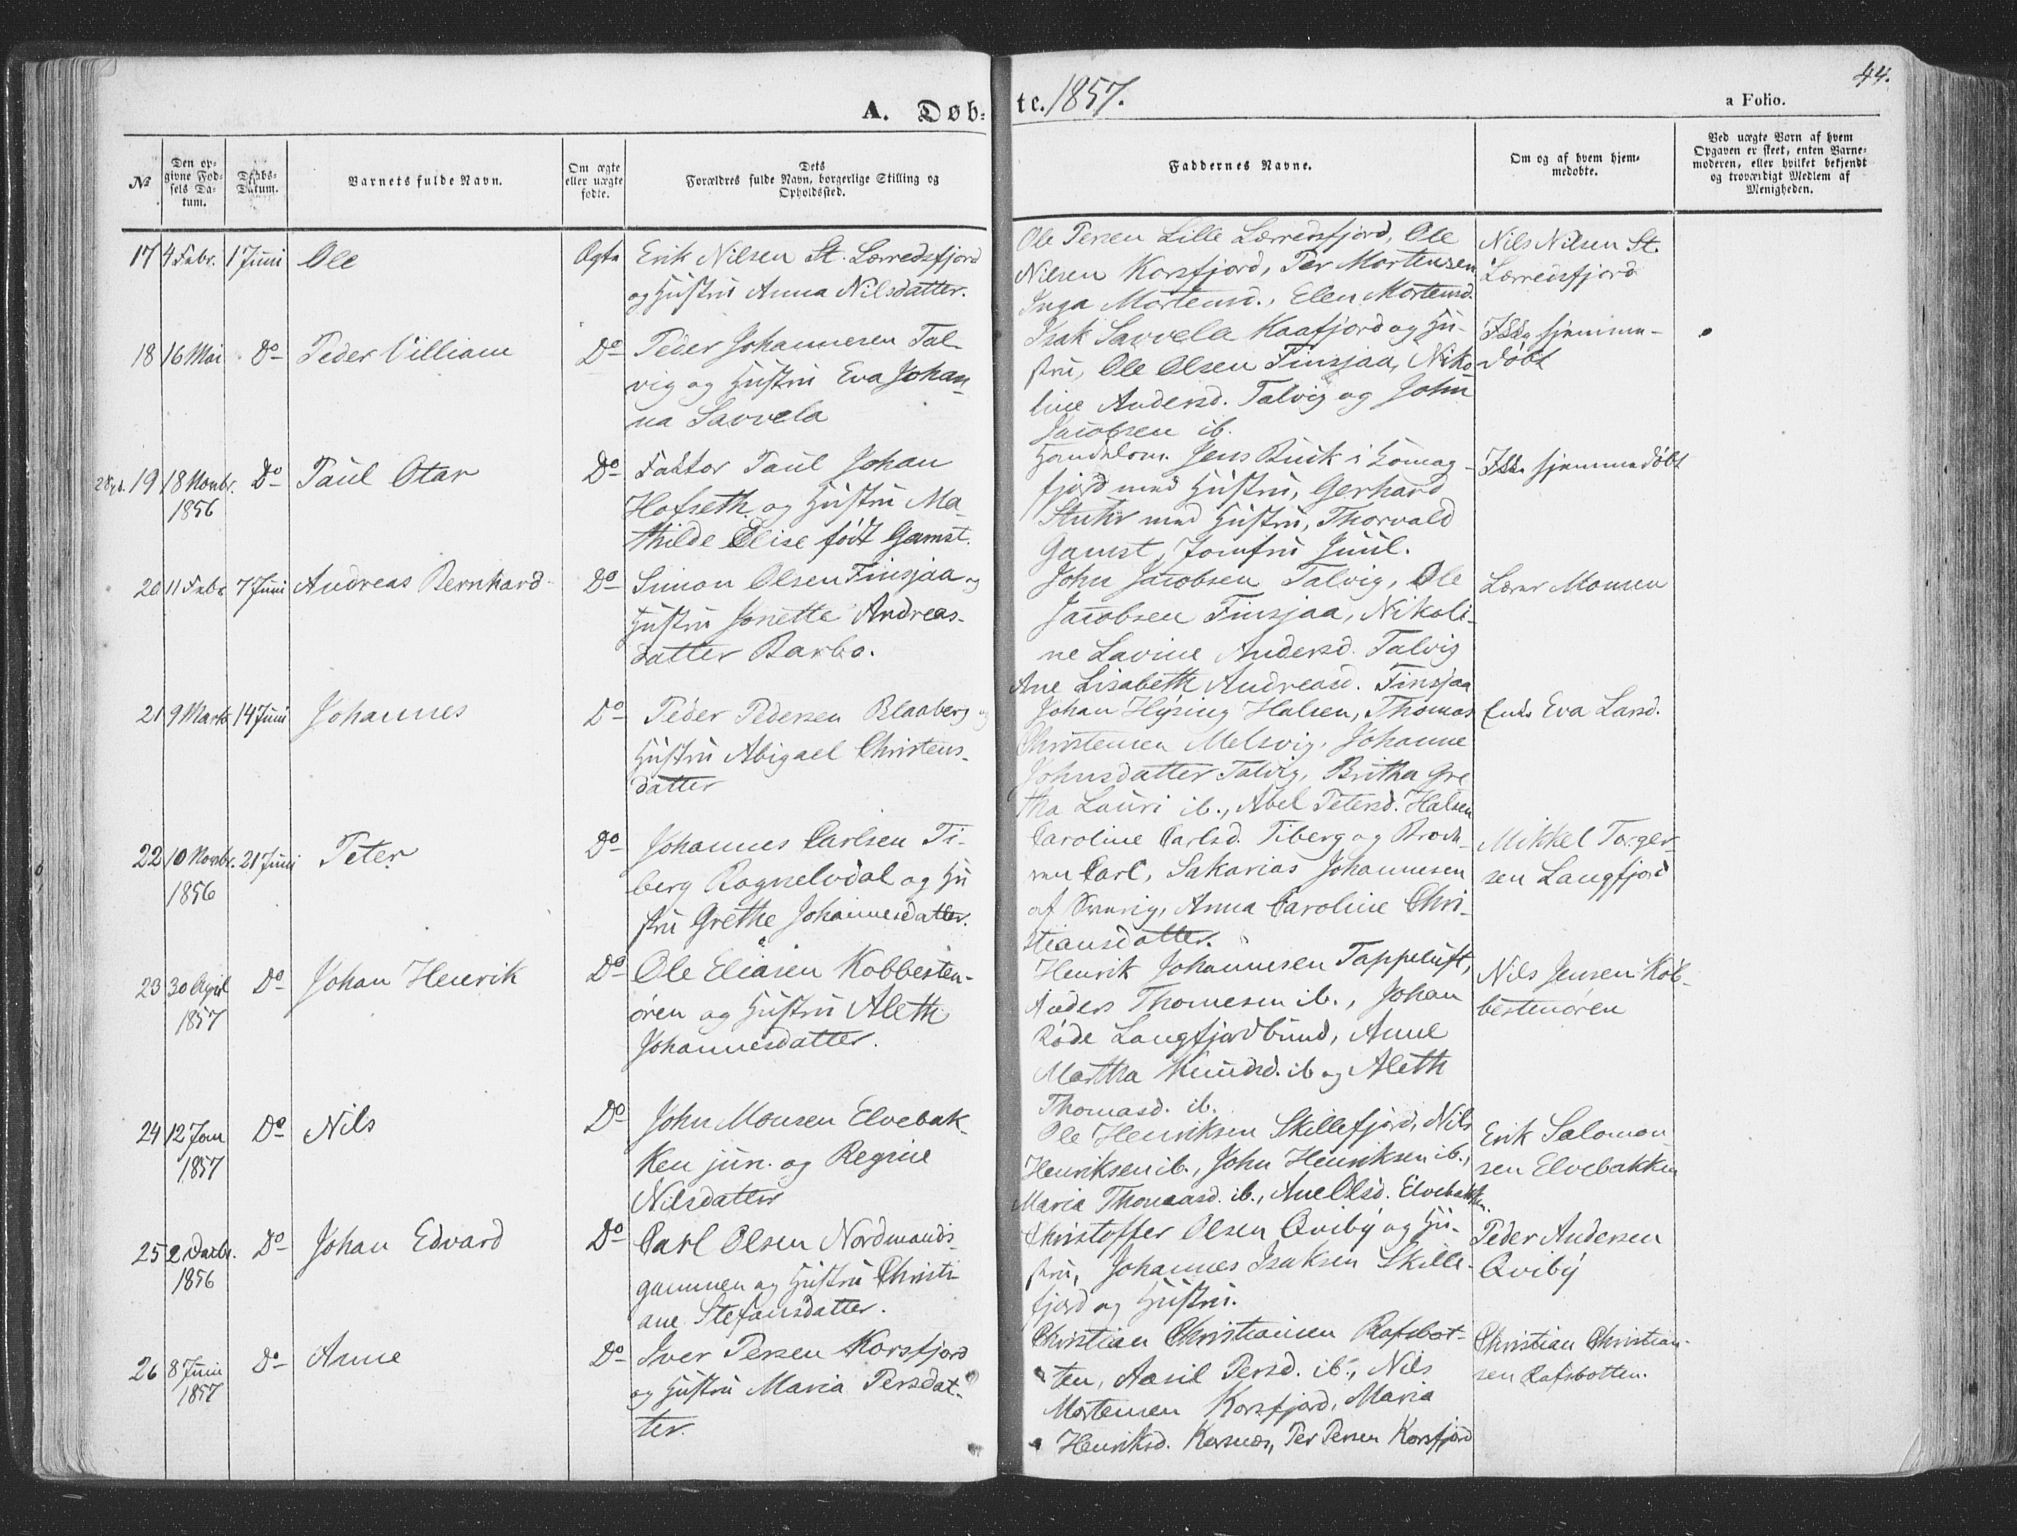 44.
A. Døb-
te. 1857.
a Folio.
No
Den op-
givne Fød-
sels Da-
tum.
Daabs-
Datum.
Barnets fulde Navn.
Om ægte
eller uægte
fødte.
Dets
Forældres fulde Navn, borgerlige Stilling og
Opholdssted.
Faddernes Navne.
Om og af hvem hjem-
medøbte.
Ved uægte Børn af hvem
Opgaven er skeet, enten Barne-
moderen, eller hvilket bekjendt
og troværdigt Medlem af
Menigheden.
17 4 Febr. 1 Juni Ole Ægte
Erik Nilsen St. Lærredsfjord
og Hustru Anna Nilsdatter.
Ole Persen Lille Lærredsfjord, Ole
Nilsen Korsfjord, Per Mortensen
Inga Mortensd., Elen Mortensd.
Nils Nilsen St.
Lærredsfjord
18 16 Mai Do Peder Villiam Do
Peder Johannesen Tal-
vig og Hustru Eva Johan-
na Savvela
Isak Savvela Kaafjord og Hu-
stru, Ole Olsen Finsjaa, Niko
line Andersd. Talvig og John
Jacobsen ib.
Ikke hjemme-
døbt
19 18 Novbr. Do Paul Otar Do
1856
Faktor Paul Johan
Hofseth og Hustru Ma-
thilde Elise født Gamst.
Handelsm. Jens Buck i Komag-
fjord med Hustru, Gerhard
Stuhr med Hustru, Thorvald
Gamst, Jomfru Juul.
Ikke hjemmedøbt
20 11 Febr 7 Juni Andreas Bernhard Do
Simon Olsen Finsjaa og
Hustru Jonette Andreas-
datter Barbo.
John Jacobsen Talvig, Ole
Jacobsen Finsjaa, Nikoli-
ne Lavine Andersd. Talvig
Ane Lisabeth Andreasd. Finsjaa
Lærer Monsen
21 9 Marts 14 Juni Johannes Do
Peder Pedersen Blaaberg og
Hustru Abigael Christens-
datter
Johan Hysing Halsen, Thomas
Christensen Melsvig, Johanne
Johnsdatter Talvig, Britha Gre
tha Lauri ib., Abel Petersd. Halsen
Enke Eva Larsd.
22 10 Novbr. 21 Juni Peter Do
1856
Johannes Carlsen Ti-
berg Bognelvdal og Hu
stru Grethe Johannesdatter.
Caroline Carlsd. Tiberg og Brode-
ren Carl, Sakarias Johannesen
af Sverig, Anna Caroline Chri-
stiansdatter.
Mikkel Torger-
sen Langfjord
23 30 April Do Johan Henrik Do
1857
Ole Eliasen Kobbesten-
øren og Hustru Aleth
Johannesdatter.
Henrik Johannesen Tappeluft,
Anders Thomesen ib., Johan
Røde Langfjordbund, Anne
Martha Knudsd. ib og Aleth
Thomasd. ib.
Nils Jensen Kob-
bestenøren
24 12 Jan Do Nils Do
1857
John Monsen Elvebak-
ken jun. og Regine
Nilsdatter
Ole Henriksen Skillefjord, Nils
Henriksen ib., John Henriksen ib.,
Maria Thomasd. ib., Ane Olsd. Elvebakken.
Erik Salomon
sen Elvebakken
25 2 Decbr. Do Johan Edvard Do
1856
Carl Olsen Nordmands-
gammen og Hustru Christi-
ane Stefansdatter.
Christoffer Olsen Qviby og Hu-
stru, Johannes Isaksen Skille-
fjord og Hustru.
Peder Andersen
Qviby
26 8 Juni Do Anne Do
1857
Iver Persen Korsfjord
og Hustru Maria Persdat-
ter.
Christian Christiansen Rafsbot-
ten, Aasil Persd. ib., Nils
Mortensen Korsfjord, Maria
Henriksd. Kornæs, Per Persen Korsfjord
Christian Christian-
sen Rafsbotten.